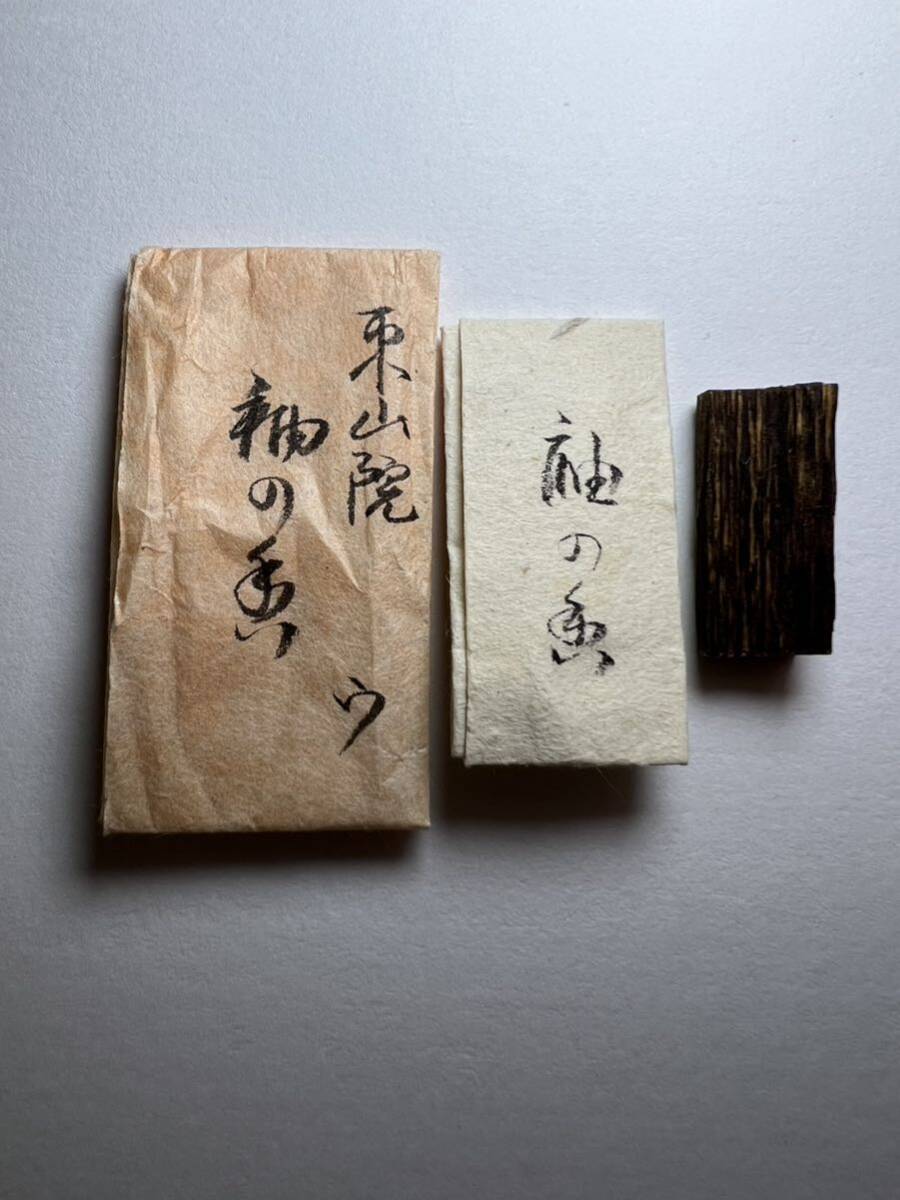 東山院
袖の香
ウ
袖の香